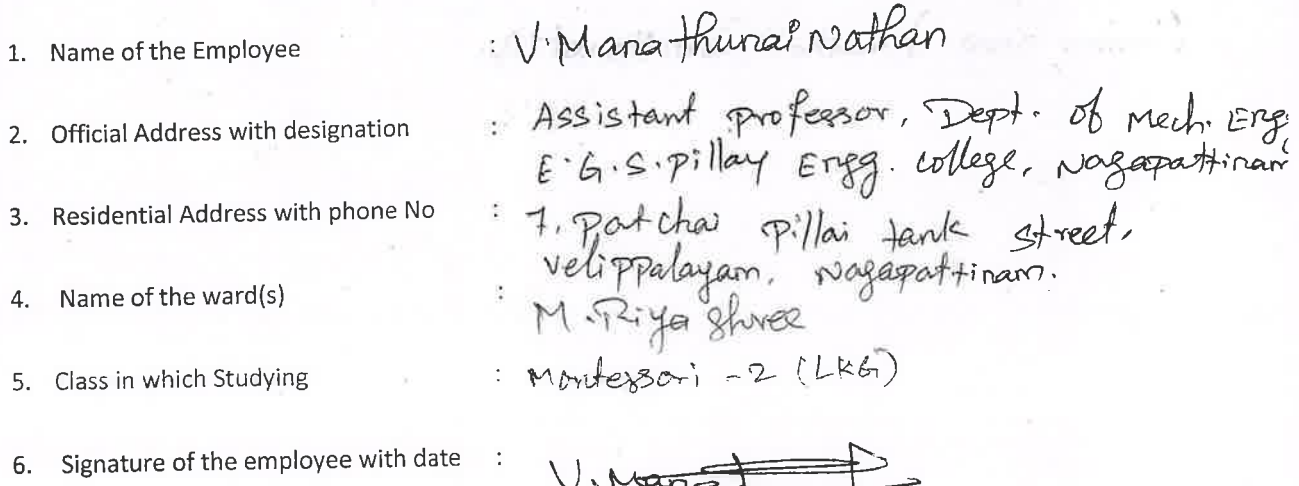 1. Name of the Employee : V. Mana thunai Nathan
2. Official Address with designation : Assistant professor, Dept. of Mech. Eng.
E.G.S. pillay Engg. college, Nagapattinam
3. Residential Address with phone No : 7, Patchai pillai tank street,
Velippalayam, Nagapattinam.
4. Name of the ward(s) :
M. Riya Shree
5. Class in which Studying : Montessori - 2 (LKG)
6. Signature of the employee with date : V. Mana